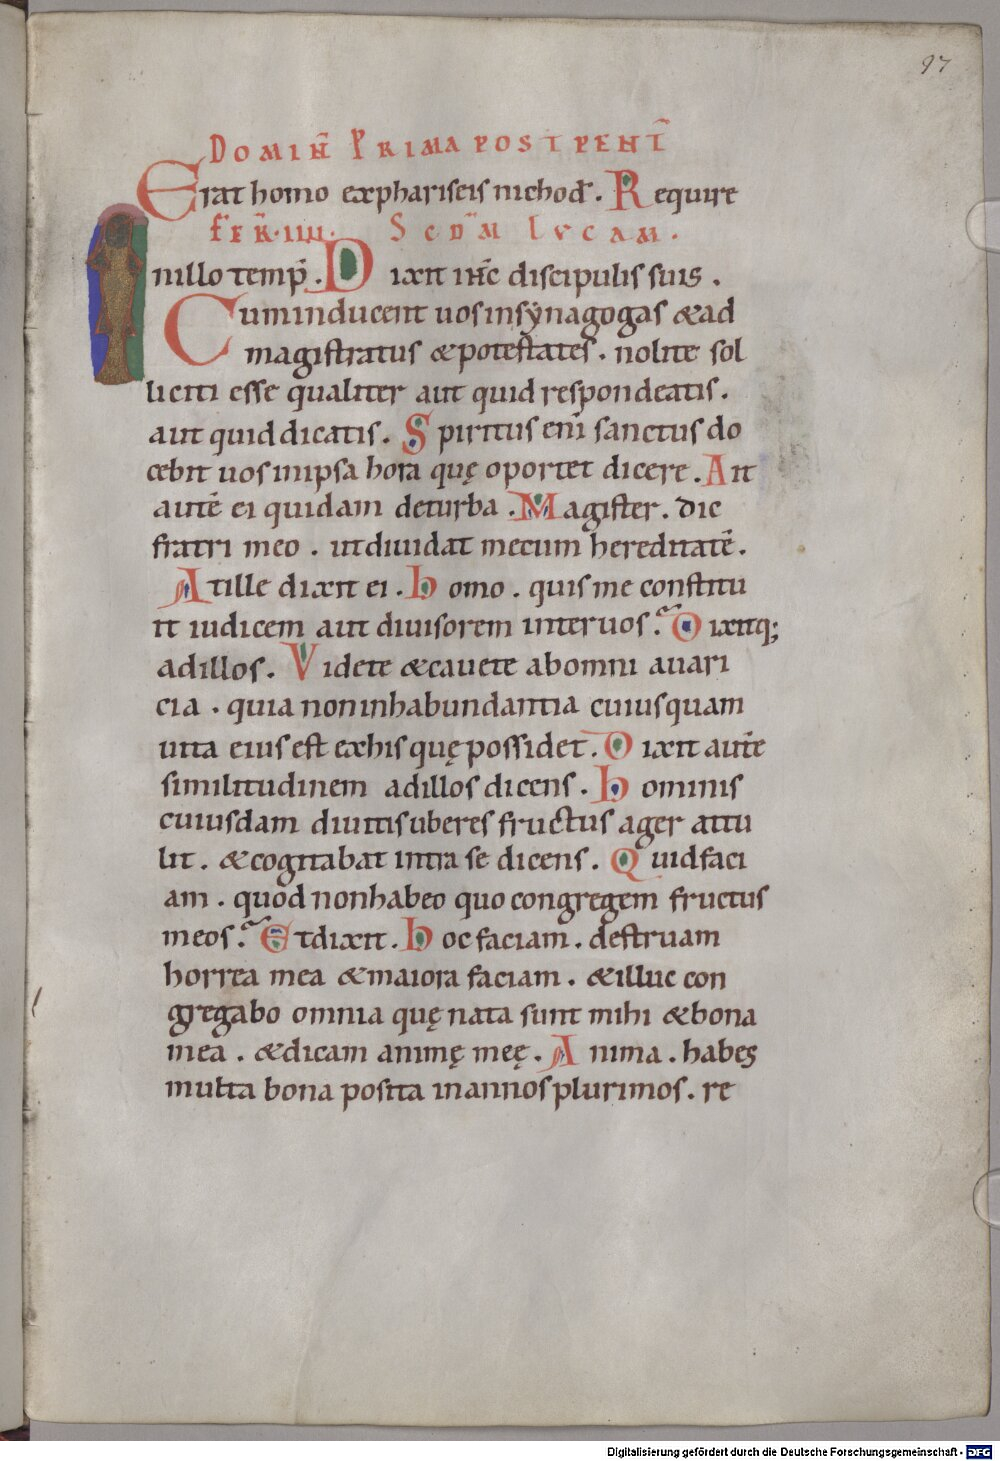 97
DOMIÑ PRIMA POST PENT̄
Erat homo expharıseıs nıchođ. Requıre
FER̄·IIII· SCD̄M LVCAM.
Inıllo temp̄. Dıxıt ıħc dıscıpulıs suıs.
Cumınducent uosınsẏnagogas &ad
magıstratus &potestates. nolıte sol
lıcıtı esse qualıter aut quıd respondeatıs.
aut quıd dıcatıs. Spırıtus enī sanctus do
cebıt uosınıpsa hora quę oportet dıcere. Aıt
autē eı quıdam deturba. Magıster. dıc
fratrı meo. utdıuıdat mecum heredıtatē.
Atılle dıxıt eı. homo. quıs me constıtu
ıt ıudıcem aut dıuısorem ınteruos? Dıxıtq;
adıllos. Vıdete &cauete abomnı auarı
cıa. quıa nonınhabundantıa cuıusquam
uıta eıus est exhıs quę possıdet. Dıxıt autē
sımılıtudınem adıllos dıcens. homınıs
cuıusdam dıuıtıs uberes fructus ager attu
lıt. &cogıtabat ıntra se dıcens. Quıdfacı
am. quod nonhabeo quo congregem fructus
meos? Etdıxıt. hoc facıam. destruam
horrea mea &maıora facıam. &ılluc con
gregabo omnıa quę nata sunt mıhı &bona
mea. &dıcam anımę meę. Anıma. habes
multa bona posıta ınannos plurımos. re
Digitalisierung gefördert durch die Deutsche Forschungsgemeinschaft - DFG